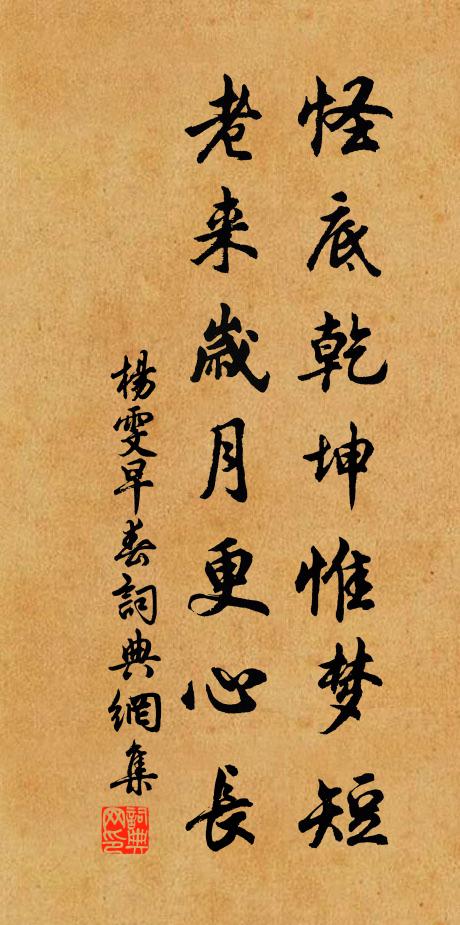 怪底乾坤惟梦短
老来歲月更心長
楊雯早春詞典網集
詞典
网印